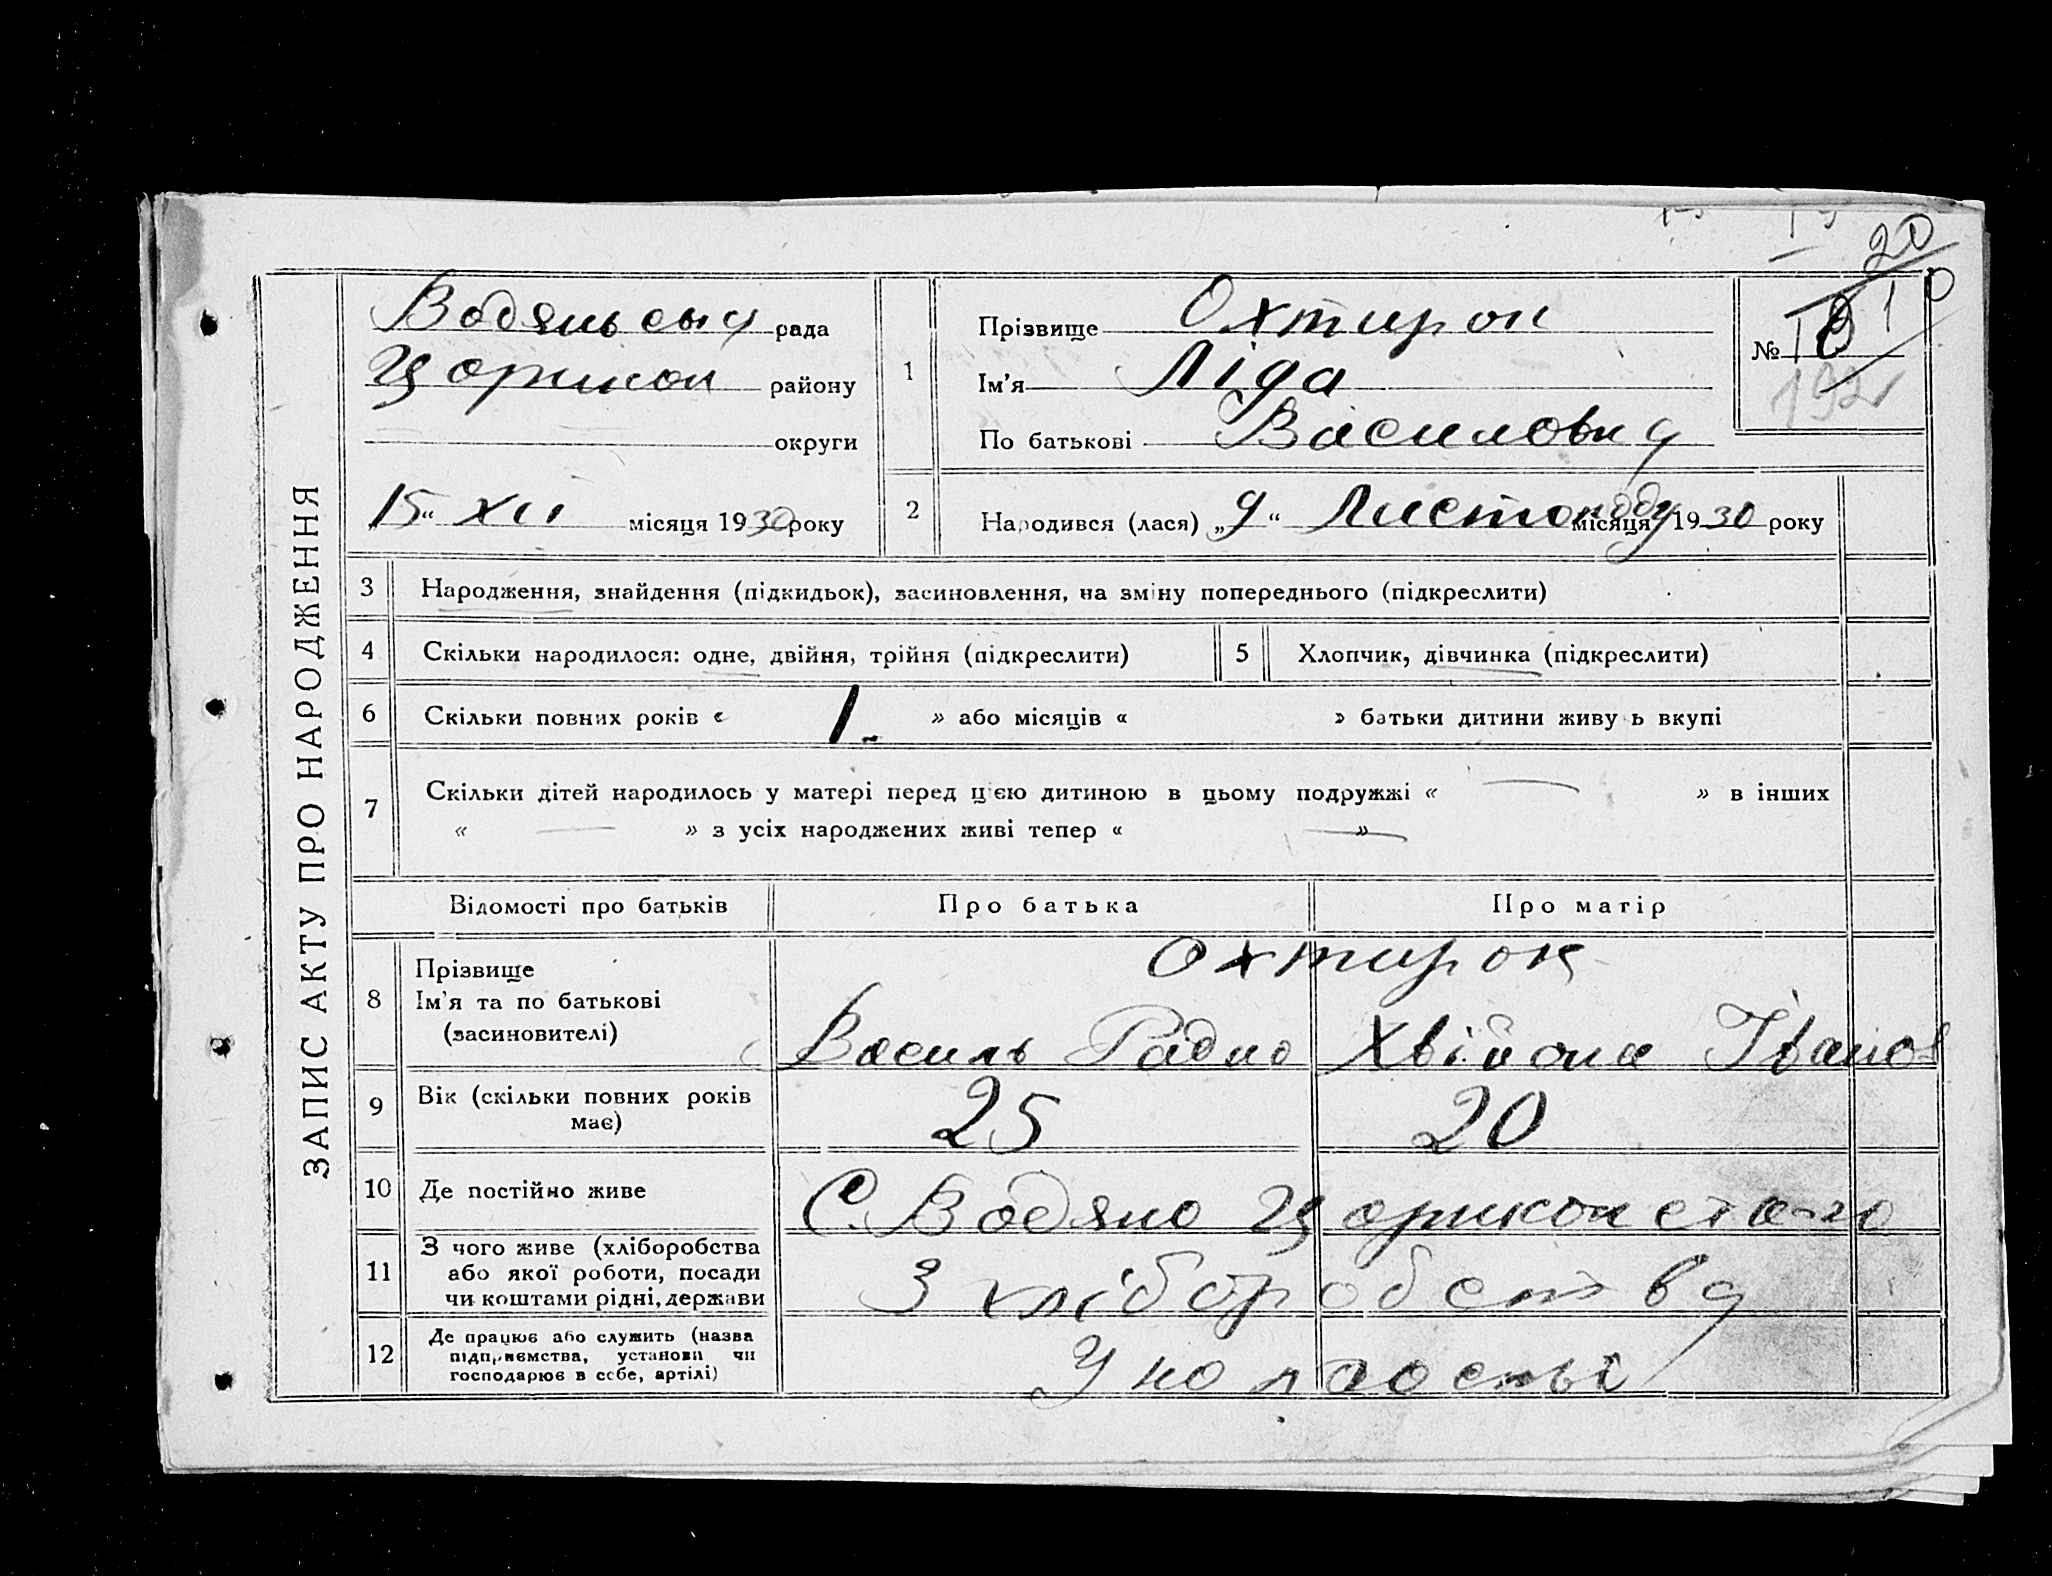 ЗАПИС АКТУ ПРО НАРОДЖЕННЯ
20
№ 18
192
Водяньська рада
Царикон району
округи
„15“ XII місяця 1930 року
1 Прізвище Охтирон
Ім'я Ліда
По батькові Василовна
2 Народився (лася) „9“ Листопаду місяця 1930 року
3 Народження, знайдення (підкидьок), засиновлення, на зміну попереднього (підкреслити)
4 Скільки народилося: одне, двійня, трійня (підкреслити)
5 Хлопчик, дівчинка (підкреслити)
6 Скільки повних років « 1. » або місяців « » батьки дитини живуть вкупі
7 Скільки дітей народилось у матері перед цією дитиною в цьому подружжі « — » в інших
« — » з усіх народжених живі тепер « — »
Відомості про батьків Про батька Про матір
8 Прізвище
Ім'я та по батькові
(засиновителі)
Охтирон
Василь Радио Хвійона Іванов
9 Вік (скільки повних років
має)
25 20
10 Де постійно живе С. Водяно
11 З чого живе (хліборобства
або якої роботи, посади
чи коштами рідні, держави
З хліборобства
12 Де працює або служить (назва
підприємства, установи чи
господарює в себе, артілі)
У